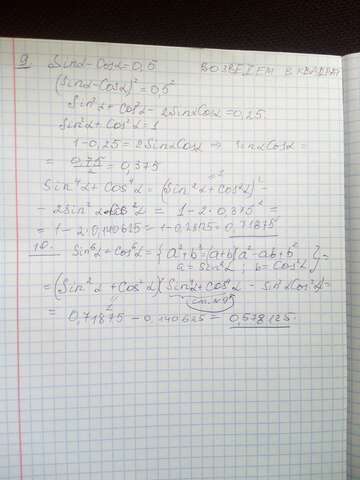 9 Sinα-Cosα=0,5 ВОЗВЕДЕМ В КВАДРАТ
(Sinα-Cosα)²=0,5²
Sin²α+cos²α-2SinαCosα=0,25
Sin²α+Cos²α=1
1-0,25=2SinαCosα ⇒ SinαCosα=
= 0,75/2 = 0,375
Sin⁴α+Cos⁴α=(Sin²α+cos²α)²-
-2Sin²αCos²α = 1-2·0,375² =
=1-2·0,140625=1-0,28125=0,71875
10. Sin⁶α+Cos⁶α={a³+b³=(a+b)(a²-ab+b²)
a=Sin²α; b=Cos²α}=
=(Sin²α+cos²α)(Sin⁴α+cos⁴α-Sin²αCos²α)=
см. №9
= 0,71875-0,140625=0,578125.